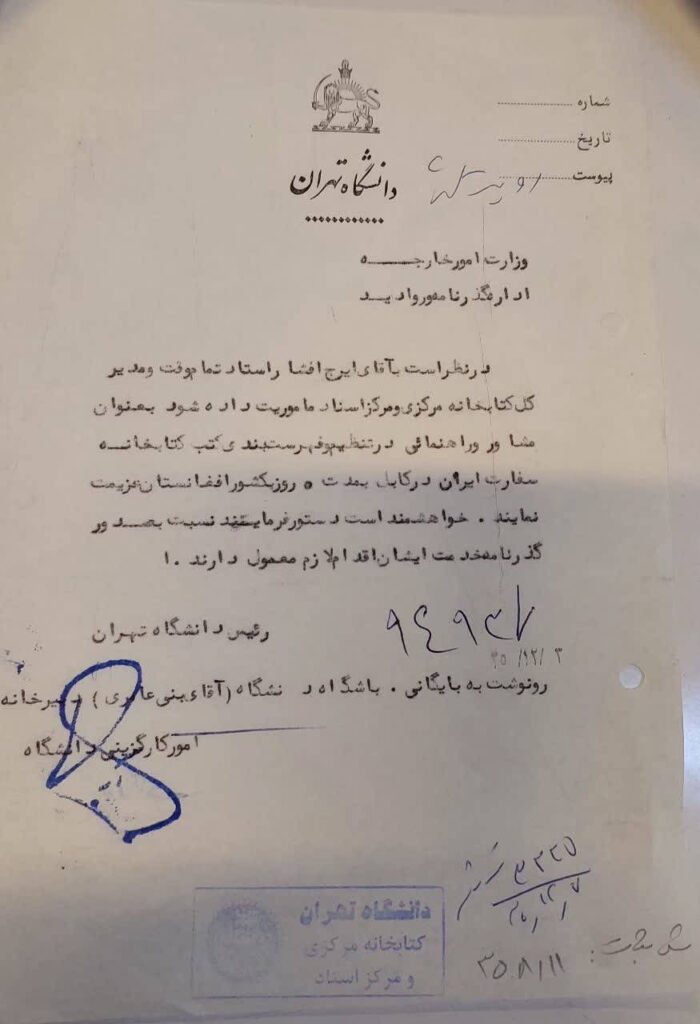 شماره
تاریخ
پیوست
دانشگاه تهران
وزارت امور خارجه
اداره گذرنامه و روادید
در نظر است به آقای ایرج افشار استاد تمام وقت و مدیر
کل کتابخانه مرکزی و مرکز اسناد ماموریت داده شود بعنوان
مشاور و راهنمائی در تنظیم و فهرست بندی کتب کتابخانه
سفارت ایران در کابل بمدت ۵ روز بکشور افغانستان عزیمت
نمایند . خواهشمند است دستور فرمایند نسبت بصدور
گذرنامه خدمت ایشان اقدام لازم معمول دارند . ا
رئیس دانشگاه تهران
۹۴۹۳۷
۳۵/۱۲/۳
رونوشت به بایگانی . باشگاه دانشگاه (آقای بنی عامری) دبیرخانه
امور کارگزینی دانشگاه
دانشگاه تهران
کتابخانه مرکزی
و مرکز اسناد
۳۵۸/۱۱